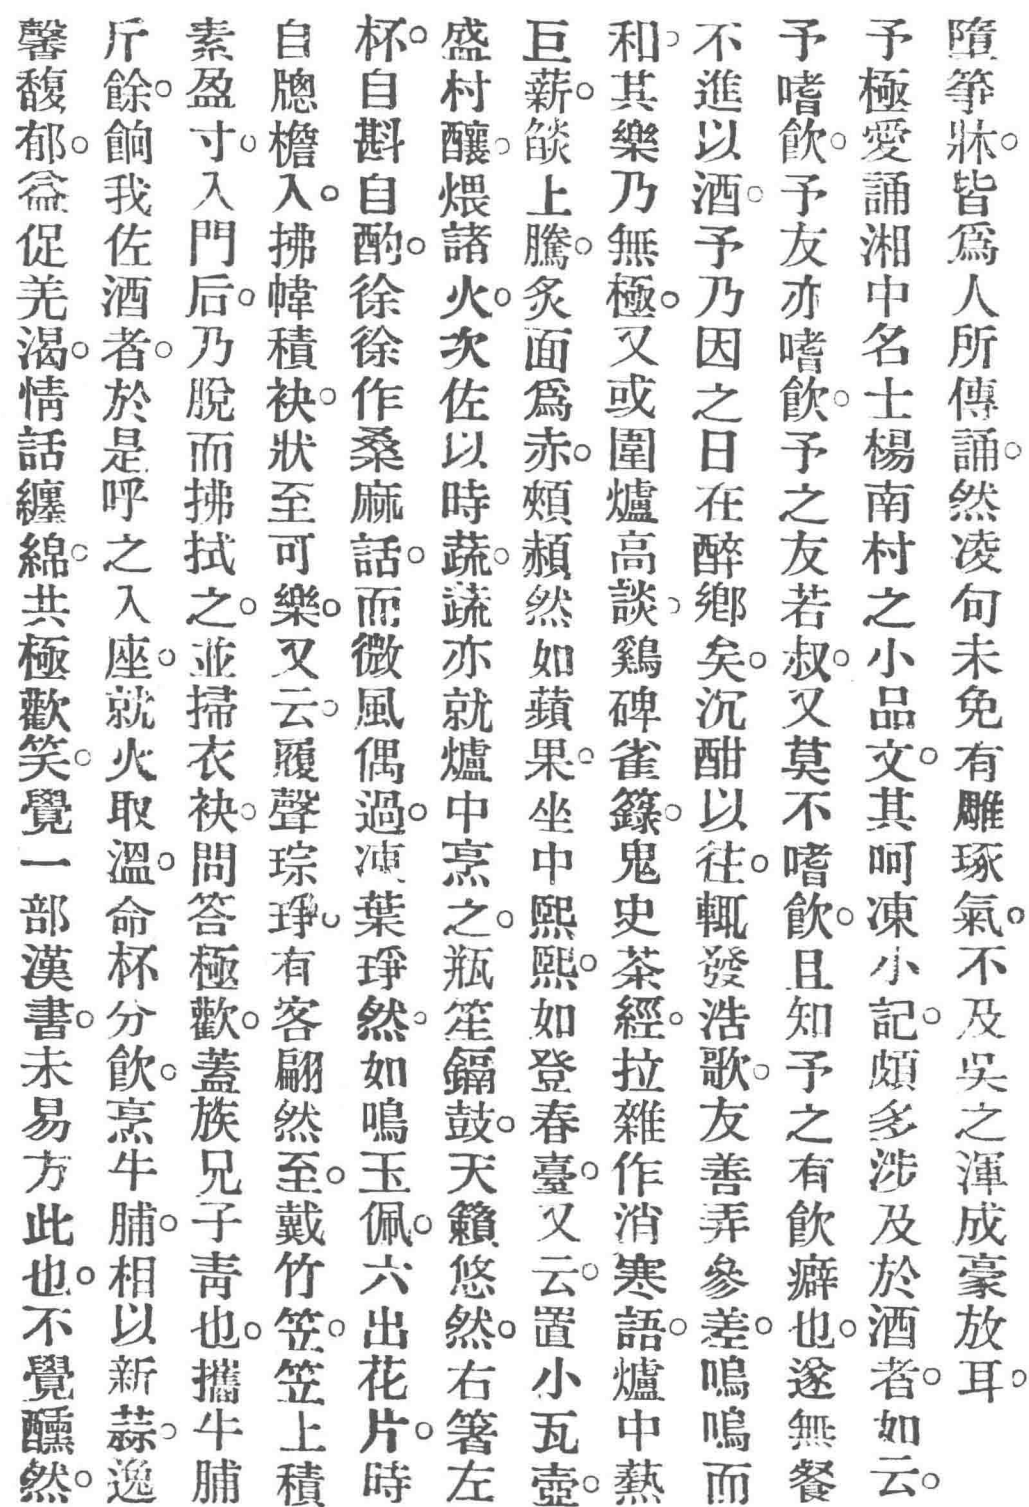 墮筝牀。皆爲人所傳誦。然凌句未免有雕琢氣。不及吳之渾成豪放耳。
予極愛誦湘中名士楊南村之小品文。其呵凍小記。頗多涉及於酒者。如云。
予嗜飮。予友亦嗜飮。予之友若叔。又莫不嗜飮。且知予之有飮癖也。遂無餐
不進以酒。予乃因之日在醉鄕矣。沉酣以往。輒發浩歌。友善弄參差。嗚嗚而
和。其樂乃無極。又或圍爐高談。鷄碑雀籙。鬼史茶經。拉雜作消寒語。爐中爇
巨薪。燄上騰。炙面爲赤。頰頳然如蘋果。坐中熙熙。如登春臺。又云。置小瓦壺。
盛村釀。煨諸火。次佐以時蔬。蔬亦就爐中烹之。瓶笙鬲鼓。天籟悠然。右箸左
杯。自斟自酌。徐徐作桑麻話。而微風偶過。凍葉琤然。如鳴玉佩。六出花片。時
自牕檐入。拂幃積袂。狀至可樂。又云。履聲琮琤。有客翩然至。戴竹笠。笠上積
素盈寸。入門后。乃脫而拂拭之。並掃衣袂。問答極歡。蓋族兄子靑也。攜牛脯
斤餘。餉我佐酒者。於是呼之入座。就火取溫。命杯分飮。烹牛脯。相以新蒜。逸
馨馥郁。益促羌渴。情話纏綿。共極歡笑。覺一部漢書。未易方此也。不覺醺然。